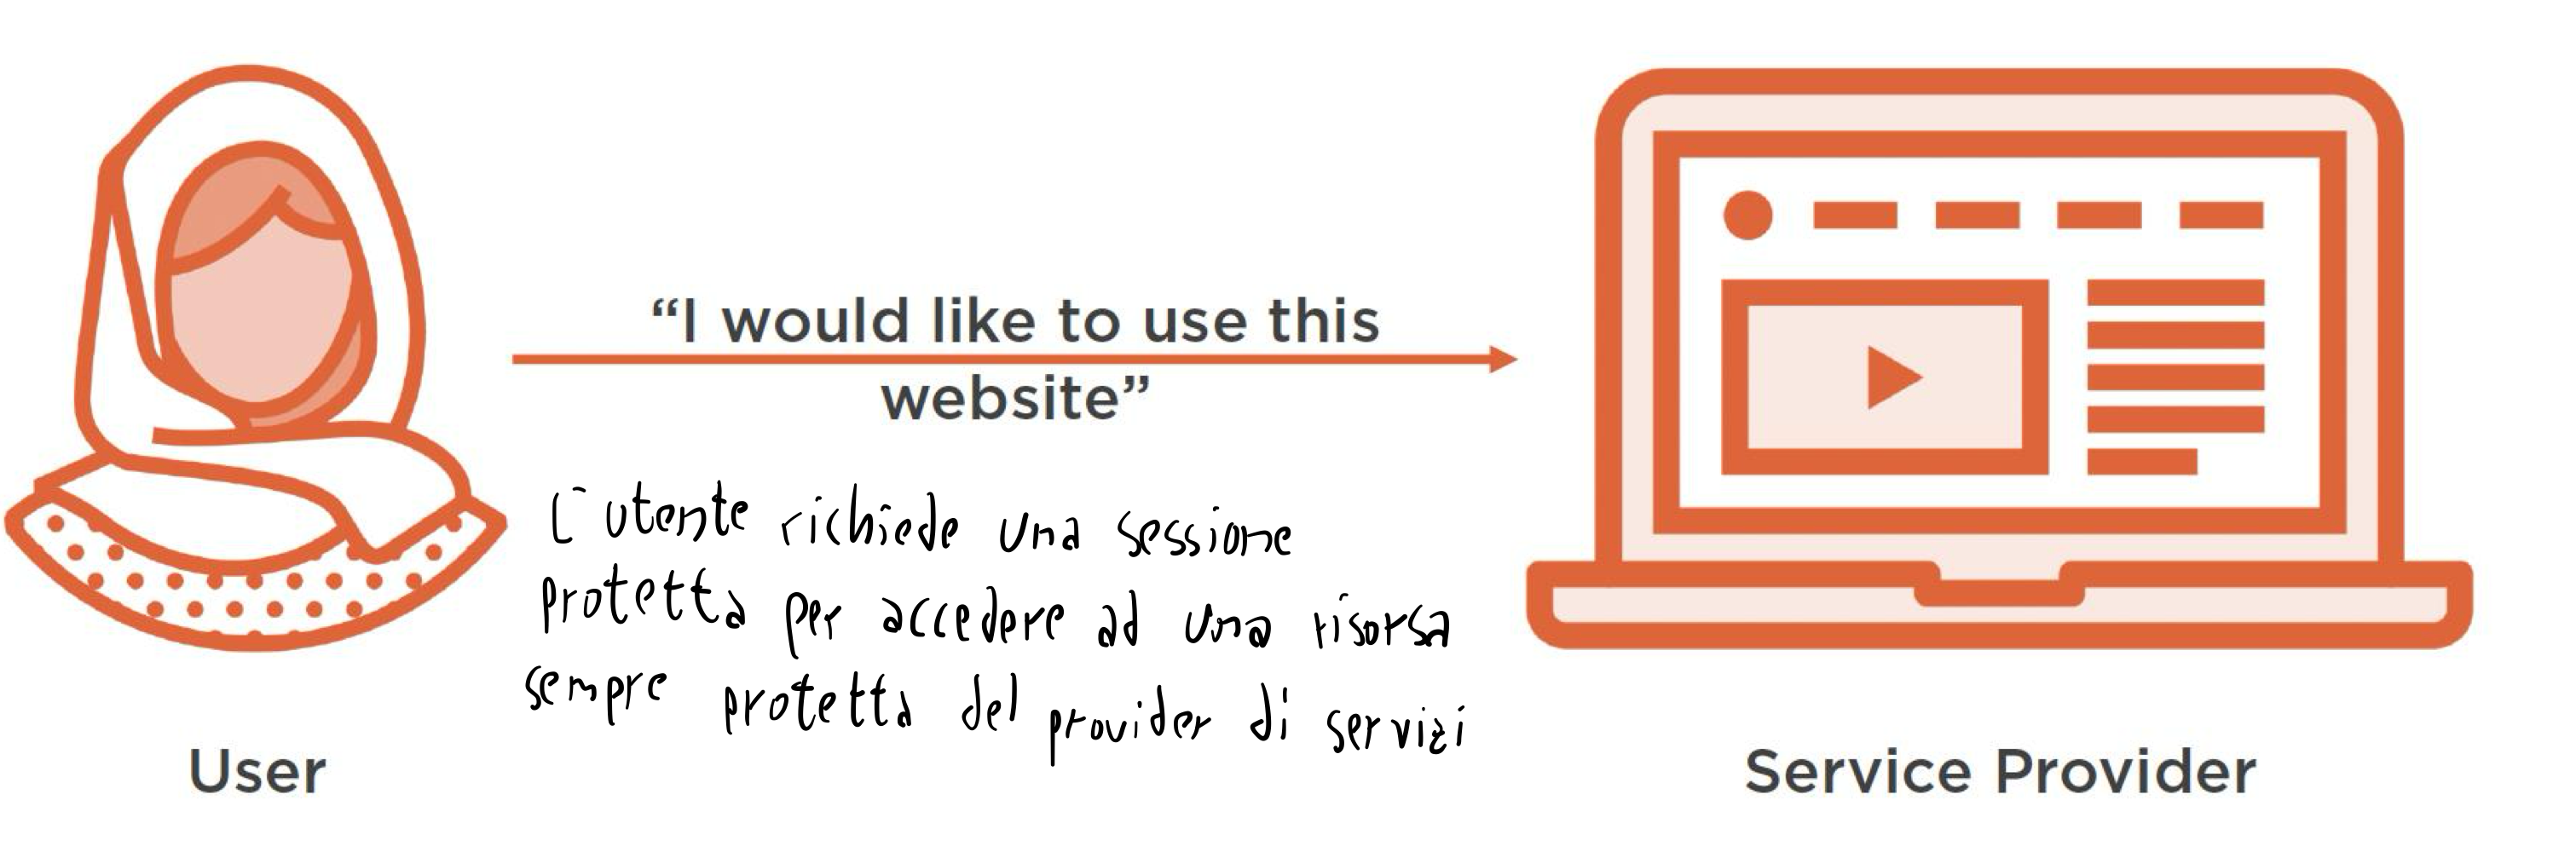 “I would like to use this
website”
L'utente richiede una sessione
protetta per accedere ad una risorsa
sempre protetta del provider di servizi
User
Service Provider